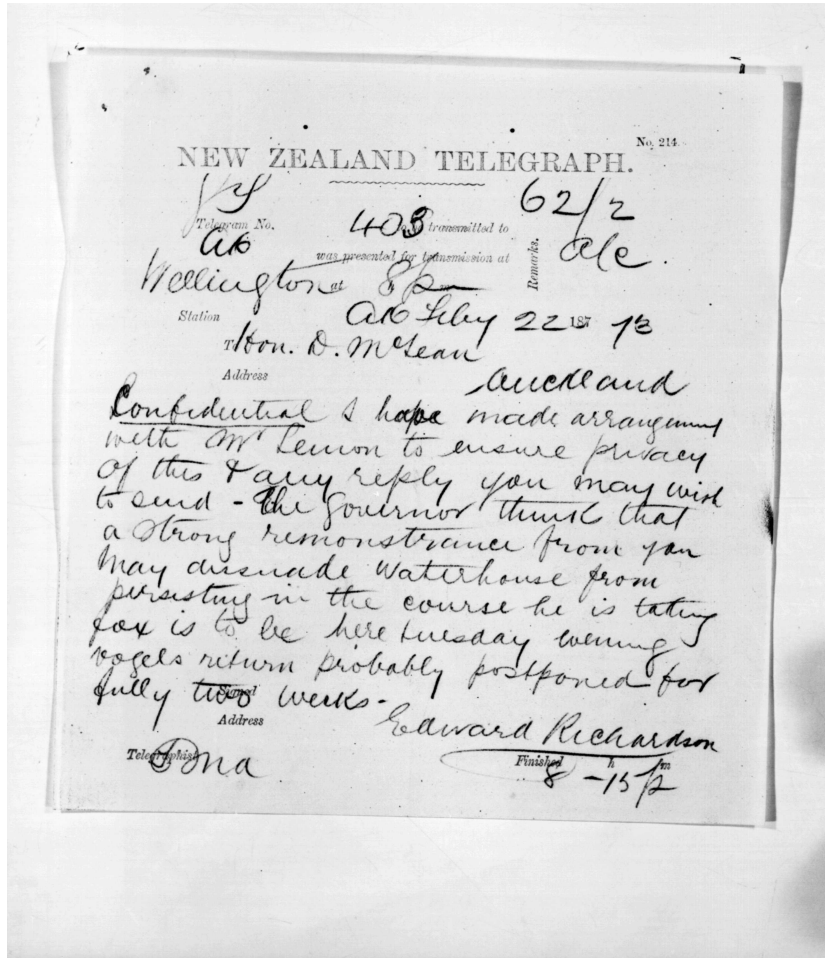 No. 214.
NEW ZEALAND TELEGRAPH.
62/2
Telegram No. 403 to be transmitted to
Ak
was presented for transmission at
Remarks. a/c
Wellington at 8 p m
Station
Ak Feby 22 187 73
To Hon. D. McLean
Address
Auckland
Confidential I have made arrangement
with Mr Lemon to ensure privacy
of this & any reply you may wish
to send - The Governor thinks that
a strong remonstrance from you
may dissuade Waterhouse from
persisting in the course he is taking
Fox is to be here tuesday evening
Vogels return probably postponed for
fully two weeks -
Signed
Address
Edward Richardson
Telegraphist
Finished h m
8 - 15 p